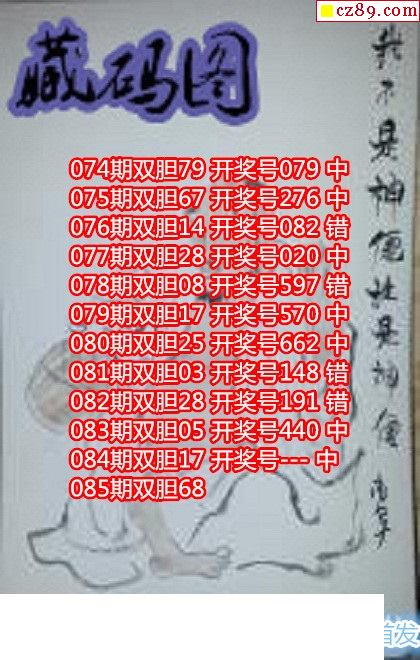 cz89.com
藏码图
074期双胆79 开奖号079 中
075期双胆67 开奖号276 中
076期双胆14 开奖号082 错
077期双胆28 开奖号020 中
078期双胆08 开奖号597 错
079期双胆17 开奖号570 中
080期双胆25 开奖号662 中
081期双胆03 开奖号148 错
082期双胆28 开奖号191 错
083期双胆05 开奖号440 中
084期双胆17 开奖号--- 中
085期双胆68
我不是神仙
是神仙
首发